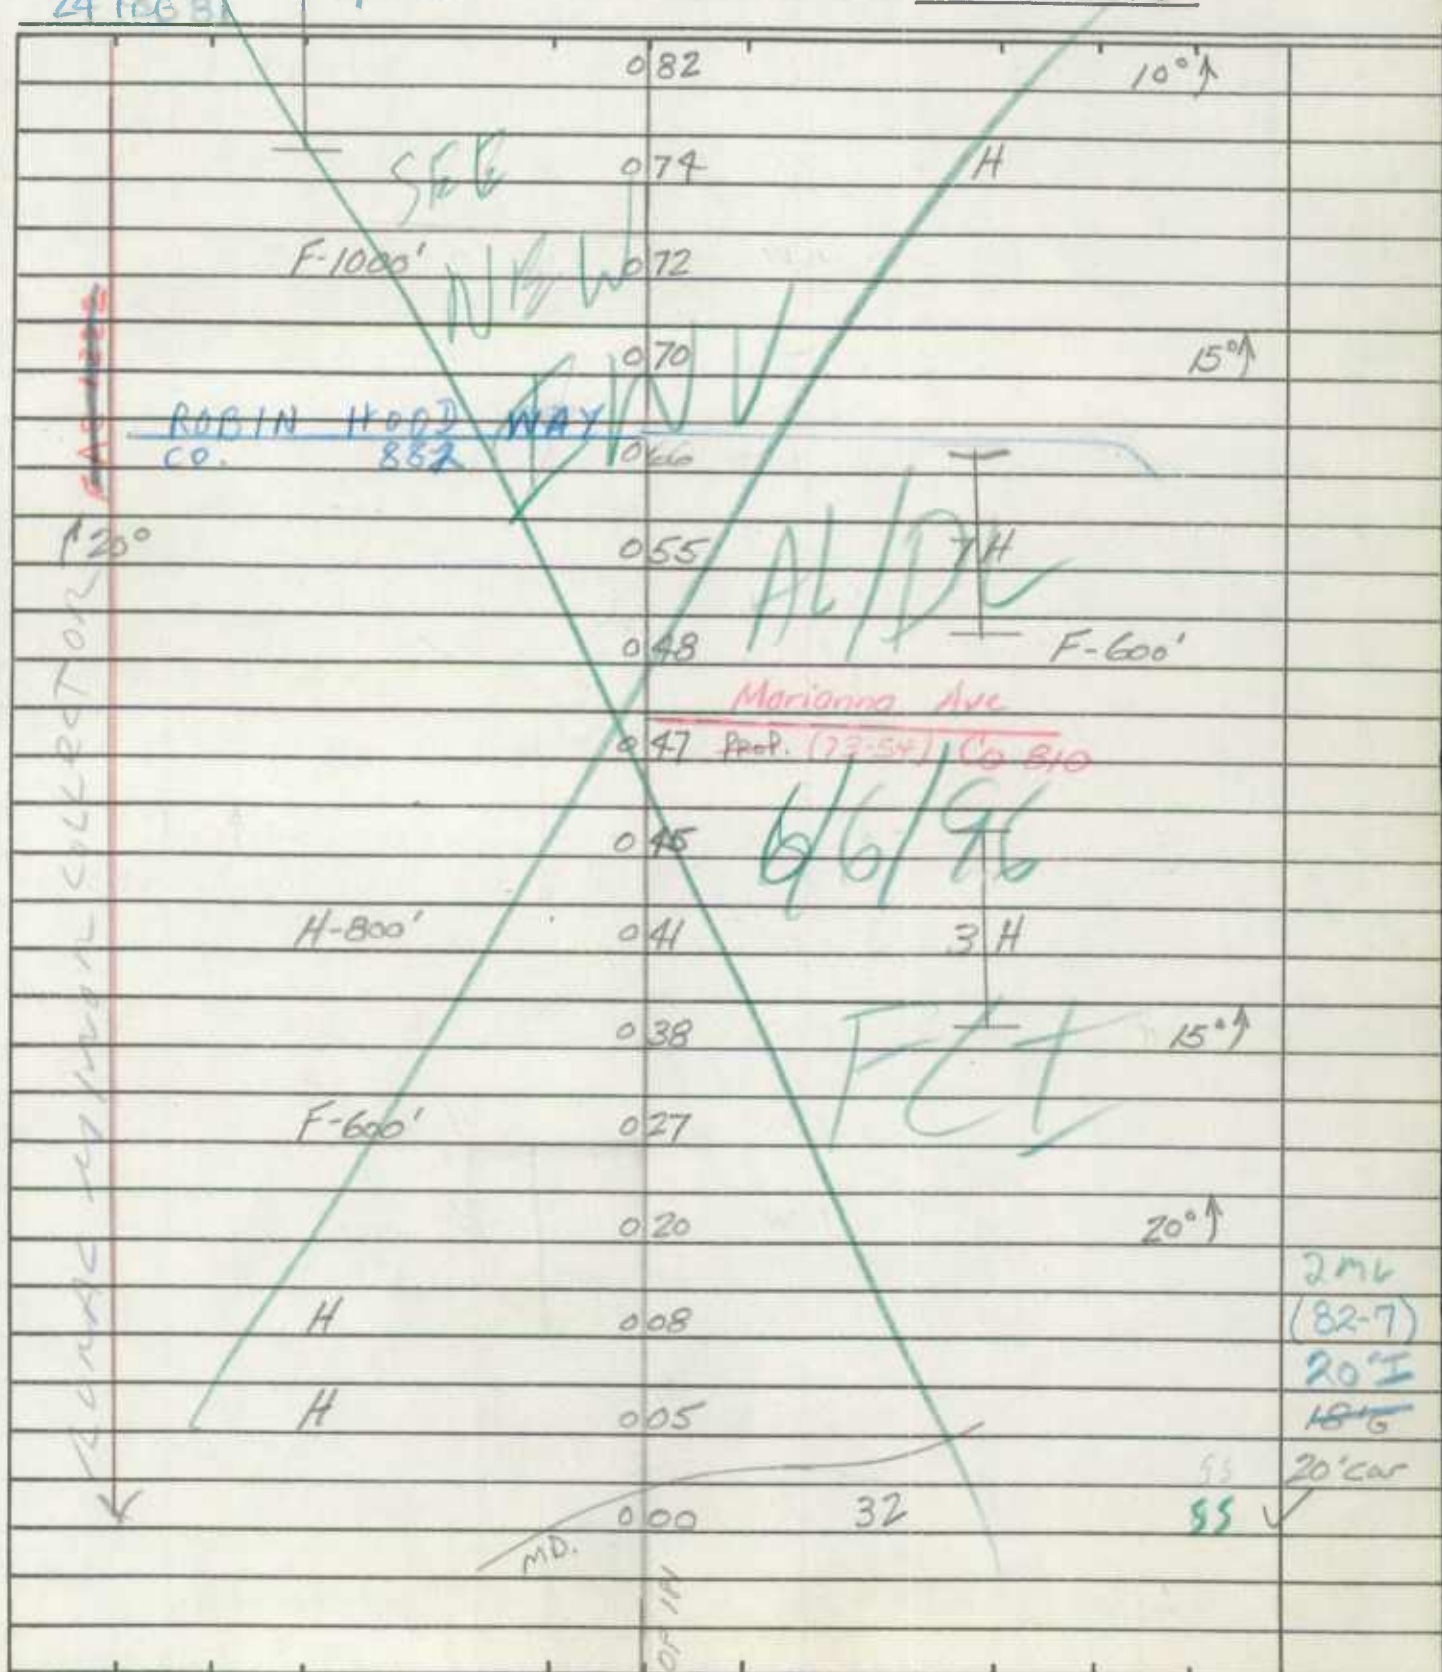 24 FEB 81
0 82 10°↑
SEE 0 74 H
F-1000' NEW 0 72
INV 0 70 15°↑
ROBIN HOOD WAY
CO. 882 0 66
↑20° 0 55 AL/DL 7 H
0 48 F-600'
Marianna Ave
0 47 PROP. (73-54) CO 810
0 45 6/6/96
H-800' 0 41 3 H
0 38 FCI 15°↑
F-600' 0 27
0 20 20°↑
H 0 08 (82-7)
20'I
H 0 05 18'G
SS 20'car
0 00 32 SS
MD.
MINOR COLLECTOR